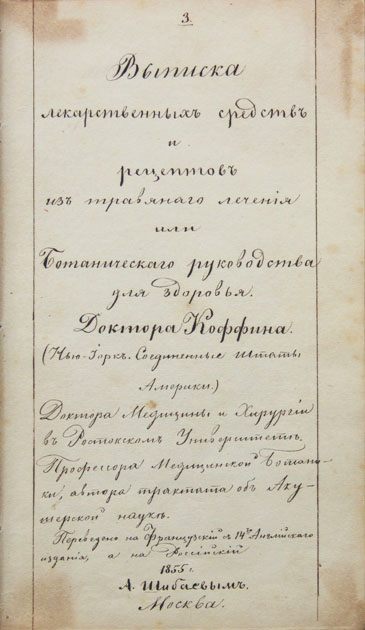 3.
Выписка
лекарственныхъ средствъ
и
рецептовъ
изъ травянаго леченія
или
Ботаническаго руководства
для здоровья.
Доктора Коффина.
(Нью-Іоркъ. Соединенные Штаты
Америки.)
Доктора Медицины и Хирургіи
въ Ростокскомъ Университетѣ.
Профессора Медицинской Ботани-
ки, автора трактата объ Аку-
шерской наукѣ.
Переведено на Французскій съ 14го Англійскаго
изданія, а на Россійскій
1855 г.
А. Шибаевымъ.
Москва.